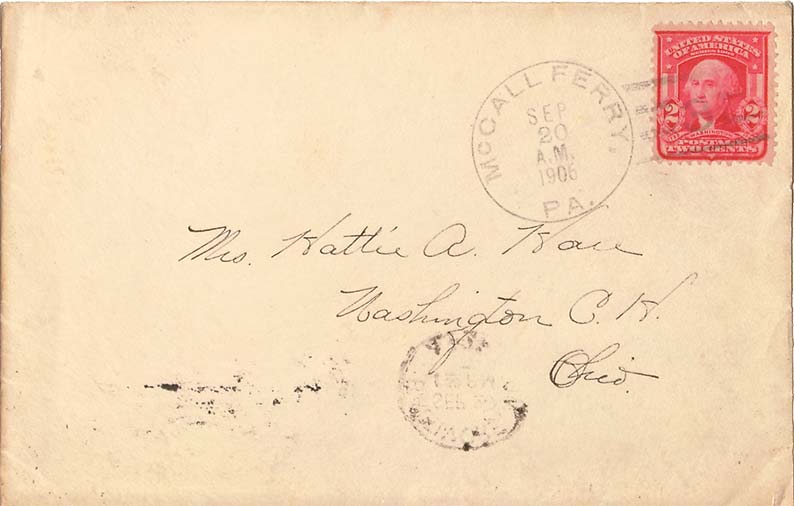 UNITED STATES
OF AMERICA
SERIES 1902
2 2
WASHINGTON
POSTAGE
TWO CENTS
McCALL FERRY,
SEP
20
A.M.
1906
PA.
Mrs. Hattie A.
Washington C. H.
Ohio.